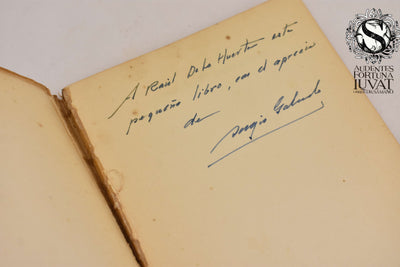 A Raúl De La Huerta este
pequeño libro, con el aprecio
de
Sergio Galindo
S
AUDENTES
FORTUNA
IUVAT